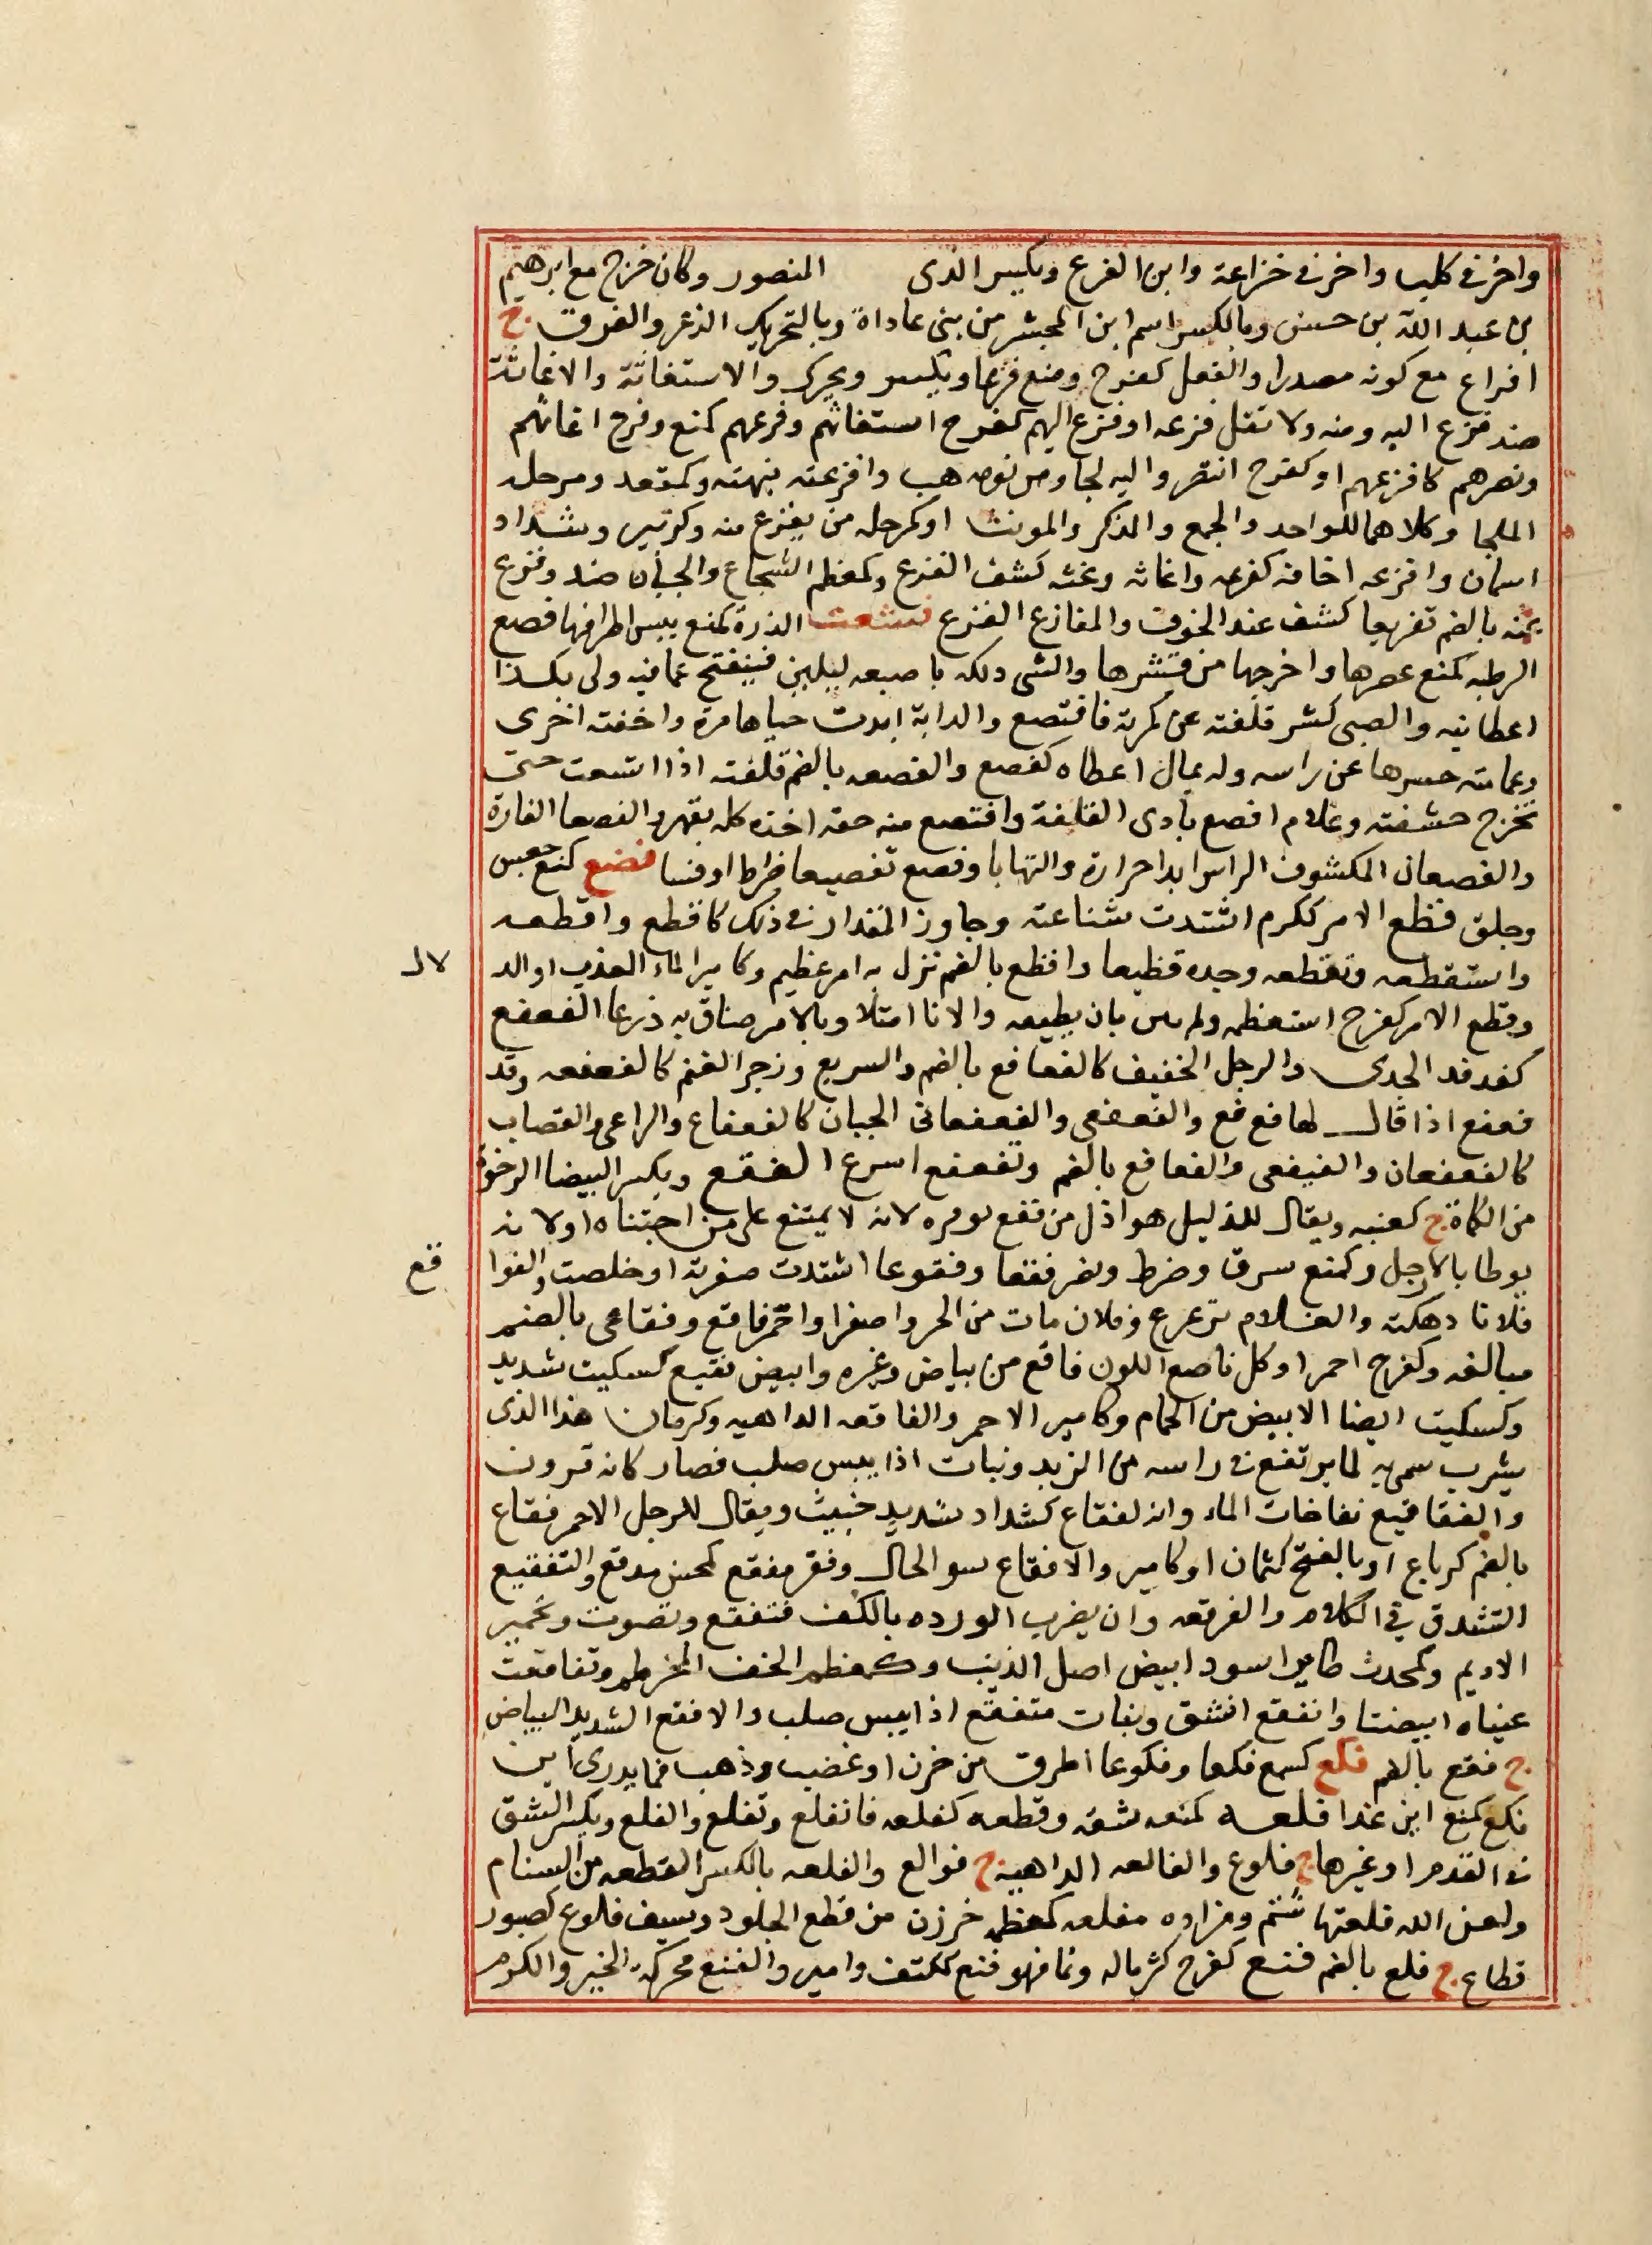 واخر فى كلب واخر فى خزاعة وابن الفزع ويكسر الذى المنصور وكان خرج مع ابرهيم
بن عبد الله بن حسن وبالكسر اسم ابن المجشر من بنى عاداة وبالتحريك الذعر والفرق ج
افزاع مع كونه مصدرا والفعل كفرح ومنع فزعا ويكسر ويحرك والاستغاثة والاغاثة
ضد فزع اليه ومنه ولا تقل فزعه او فزع اليهم كفرح استغاثهم وفزعهم كمنع وفرح اغاثهم
ونصرهم كافزعهم او كفرح انتصر واليه لجا ومن نومه هب وافزعته نبهته وكمقعد ومرحله
الملجا وكلاهما للواحد والجمع والمذكر والمونث او كمرحله من يفزع منه وكزبير وشداد
اسمان وافزعه اخافه كفزعه واغاثه وعنه كشف الفزع وكمعظم الشجاع والجبان ضد وفزع
عنه بالضم تفزيعا كشف عنه الخوف والمفازع الفزع فشعت الذرة كمنع يبس اطرافها فصع
الرطبه كمنع عصرها واخرجها من قشرها والشى دلكه باصبعه ليلين فينفتح عما فيه ولى بكذا
اعطانيه والصبى كشر قلفته عن كمرته فافتصع والدابة ابدت حياها مرة واخفته اخرى
وعمامته حسرها عن راسه وله بمال اعطاه كفصع والفصعه بالضم قلفته اذا اتسعت حتى
تخرج حشفته وغلام افصع بادى القلفة وافتصع منه حقه اخذه كله بقهر والفصعا الفارة
والفصعان المكشوف الراس ابدا حرارة والتهابا وفصع تفصيعا ضرط او فسا فضع كمنع جعس
وجلق فظع الامر ككرم اشتدت شناعته وجاوز المقدار فى ذلك كافظع وافظعه
واستفظعه وتفظعه وجده فظيعا وافظع بالضم نزل به امر عظيم وكامير الماء العذب او الد
لال
وفظع الامر كفرح استعظمه ولم يثق بان يطيعه والانا امتلا وبالامر ضاق به ذرعا الفعفع
كفدفد الجدى والرجل الخفيف كالفعافع بالضم والسريع وزجر الغنم كالفعفعه وقد
فعفع اذا قال لها فع فع والفعفعى والفعفعانى الجبان كالفعفاع والراعى والقصاب
كالفعفعان والفيفعى والفعافع بالضم وتفعفع اسرع الفقع ويكسر البيضا الرخوة
من الكماة ج كعنبه ويقال للذليل هو اذل من فقع بقرقره لانه لا يمتنع على من اجتناه او لانه
يوطا بالارجل وكمنع سرق وضرط وبقر فقعا وفقوعا اشتدت صفرته او خلصت والفوا
قع
فلانا دهكته والغلام ترعرع وفلان مات من الحر واصفر واحمر فاقع وفقاعى بالضم
مبالغه وكفرح احمر او كل ناصع اللون فاقع من بياض وغيره وابيض فقيع كسكيت شديد
وكسكيت ايضا الابيض من الحمام وكامير الاحمر والفاقعه الداهيه وكرمان هذا الذى
يشرب سمى به لما يرتفع فى راسه من الزبد ونبات اذا يبس صلب فصار كانه قرون
والفقاقيع نفاخات الماء وانه لفقاع كشداد شديد خبيث ويقال للرجل الاحمر فقاع
بالضم كرباع او بالفتح كثمان او كامير والافقاع سو الحال وفقر مفقع كمحسن مدقع والتفقيع
التشدق فى الكلام والفرقعه وان يضرب الورده بالكف فتفقع وتصوت وتحمير
الاديم وكمحدث طاير اسود ابيض اصل الذنب وكمعظم الخف المخرطم وتفاقعت
عيناه ابيضتا وانفقع انشق ونبات متفقع اذا يبس صلب والافقع الشديد البياض
ج فقع بالضم فكع كسمع فكعا وفكوعا اطرق من حزن او غضب وذهب فما يدرى اين
فكع كمنع اين غدا فلعه كمنعه شقه وقطعه كفلعه فانفلع وتفلع والفلع ويكسر الشق
فى القدم او غيرها ج فلوع والفالعه الداهية ج فوالع والفلعه بالكسر القطعه من السنام
ولعن الله فلعتها شتم ومزاده مفلعه كمعظمه خرزت من قطع الجلود وسيف فلوع كصبور
قطاع ج فلع بالضم فنع كفرح كثر ماله ونما فهو فنع ككتف وامير والفنع محركة الخير والكرم